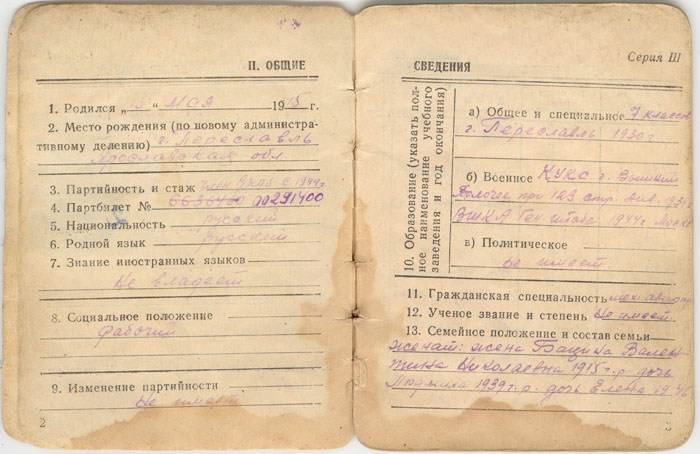 II. ОБЩИЕ
1. Родился „15“ мая 1915 г.
2. Место рождения (по новому администра-
тивному делению) г. Переславль
Ярославская обл
3. Партийность и стаж член ВКПб с 1944г
4. Партбилет № 00291400
5. Национальность русский
6. Родной язык Русский
7. Знание иностранных языков
Не владеет
8. Социальное положение
рабочий
9. Изменение партийности
Не имеет
2
Серия III
СВЕДЕНИЯ
10. Образование (указать пол-
ное наименование учебного
заведения и год окончания)
а) Общее и специальное 7 классов
г. Переславль 1930г
б) Военное КУКС г. Вышний
при 123 стр. 
ВШКА Ген. штаба 1944г
в) Политическое
Не имеет
11. Гражданская специальность
12. Ученое звание и степень Не имеет
13. Семейное положение и состав семьи
женат: жена Вален-
тина Николаевна 1915 г.р. дочь
Людмила 1939г.р. дочь Елена 1946